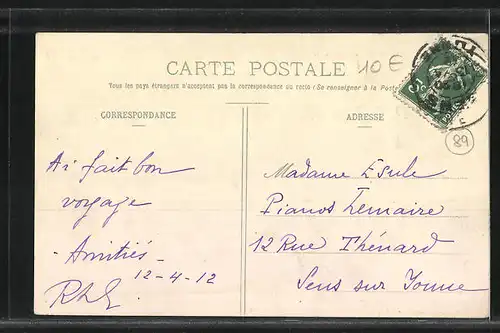 CARTE POSTALE
10 E
Tous les pays étrangers n'acceptent pas la correspondance au recto (Se renseigner à la Poste
CORRESPONDANCE
ADRESSE
89
Ai fait bon
voyage
- Amitiés -
12-4-12
Madame
Pianos Lemaire
12 Rue Thénard
Sens sur Yonne